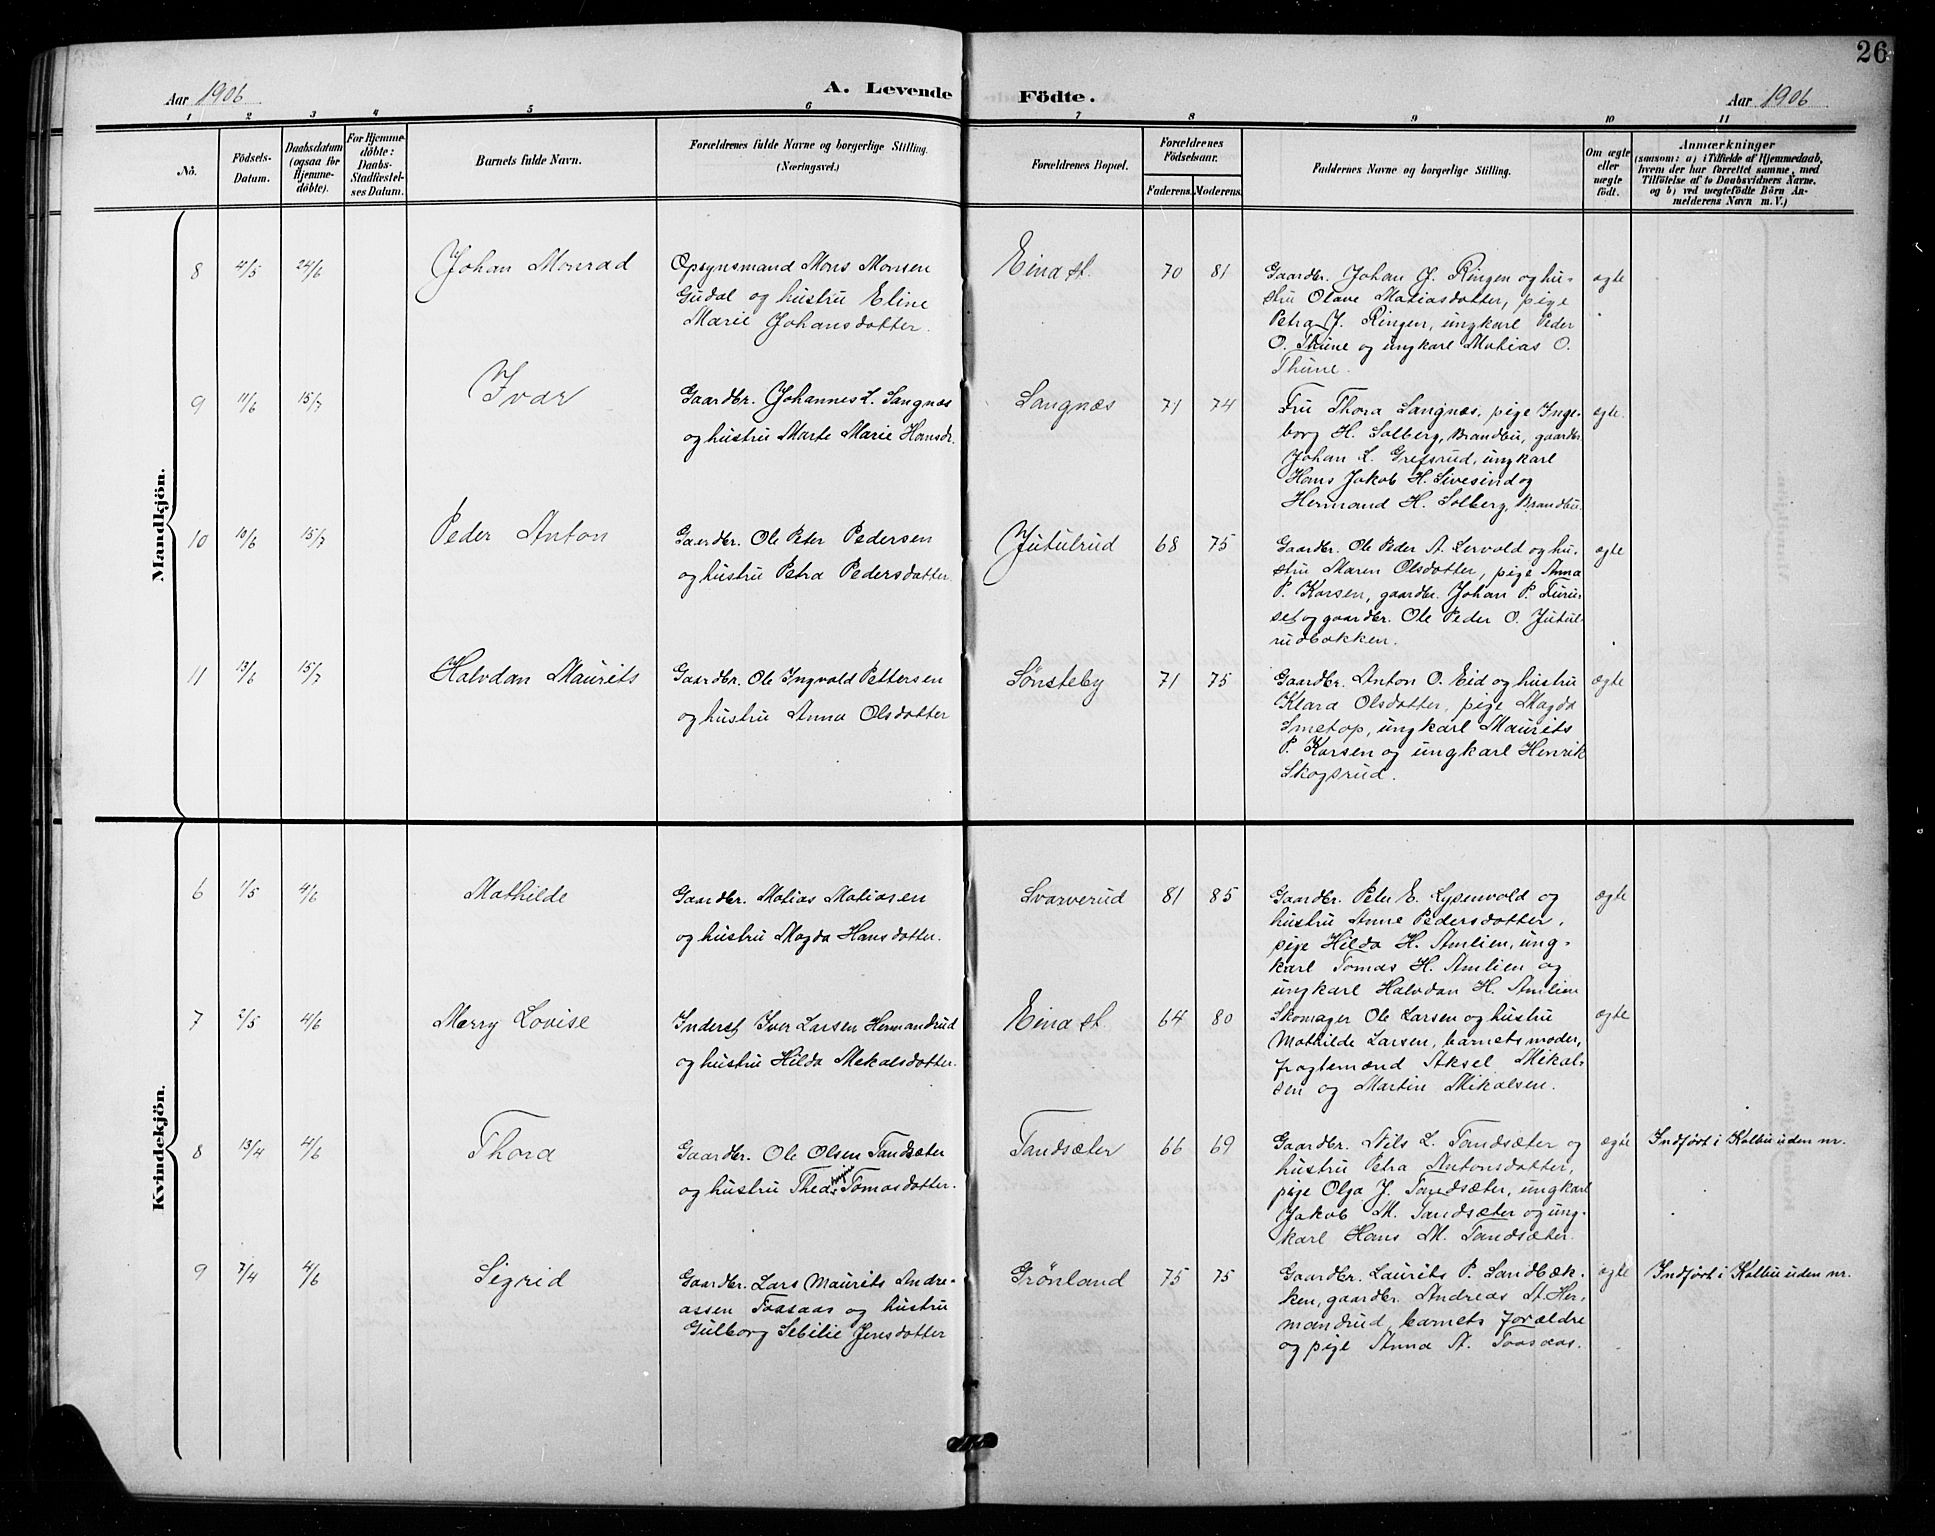 26
Aar 1906
A. Levende Födte.
Aar 1906
1 2 3 4 5 6 7 8 9 10 11
No.
Födsels-
Datum.
Daabsdatum
(ogsaa for
Hjemme-
døbte).
For Hjemme-
døbte:
Daabs-
Stadfæstel-
ses Datum.
Barnets fulde Navn.
Forældrenes fulde Navne og borgerlige Stilling.
(Næringsvei.)
Forældrenes Bopæl.
Forældrenes
Födselsaar.
Faderens. Moderens.
Faddernes Navne og borgerlige Stilling.
Om ægte
eller
uægte
födt.
Anmærkninger
(saasom: a) i Tilfælde af Hjemmedaab,
hvem der har forrettet samme, med
Tilföielse af to Daabsvidners Navne,
og b) ved uægtefödte Börn An-
melderens Navn m. V.)
Mandkjön.
8 4/5 24/6 Johan Monrad
Opsynsmand Mons Monsen
Gudal og hustru Eline
Marie Johansdotter.
Eina st. 70 81
Gaardbr. Johan J. Ringen og hu-
stru Olave Matiasdotter, pige
Petra J. Ringen, ungkarl Peder
O. Thune og ungkarl Matias O.
Thune.
ægte
9 11/6 15/7 Ivar
Gaardbr. Johannes L. Langnæs
og hustru Marte Marie Hansdr.
Langnæs 71 74
Fru Thora Langnæs, pige Inge-
borg H. Solberg, Brandbu, gaardbr.
Johan L. Grefsrud, ungkarl
Hans Jakob H. Sivesind og
Hermand H. Solberg, Brandbu.
ægte.
10 10/6 15/7 Peder Anton
Gaardbr. Ole Peter Pedersen
og hustru Petra Pedersdotter.
Jutulrud 68 75
Gaardbr. Ole Peder A. Lervold og hu-
stru Maren Olsdotter, pige Anna
P. Korsen, gaardbr. Johan P. Furu-
set og gaardbr. Ole Peder O. Jutul-
rudbakken.
ægte
11 13/6 15/7 Halvdan Maurits
Gaardbr. Ole Ingvald Pettersen
og hustru Anna Olsdotter
Sønsteby 71 75
Gaardbr. Anton O. Eid og hustru
Klara Olsdotter, pige Magda
Smetop, ungkarl Maurits
P. Korsen og ungkarl Henrik
Skogsrud.
ægte
Kvindekjön.
6 1/5 4/6 Mathilde
Gaardbr. Matias Matiasen
og hustru Magda Hansdotter.
Svarverud 81 85
Gaardbr. Peter E. Lysenvold og
hustru Anne Pedersdotter,
pige Hilda H. Amlien, ung-
karl Tomas H. Amlien og
ungkarl Halvdan H. Amlien
ægte
7 2/5 4/6 Merry Lovise
Inderst Iver Larsen Hermandrud
og hustru Hilda Mekalsdotter.
Eina st. 64 80
Skomager Ole Larsen og hustru
Mathilde Larsen, barnets moder,
fragtemænd Aksel Mikal-
sen og Martin Mikalsen.
ægte
8 13/4 4/6 Thora
Gaardbr. Ole Olsen Tandsæter
og hustru Thea Tomasdotter.
Tandsæter 66 69
Gaardbr. Nils L. Tandsæter og
hustru Petra Antonsdotter,
pige Olga J. Tandsæter, ungkarl
Jakob M. Tandsæter og ung-
karl Hans M. Tandsæter.
ægte Indført i Kolbu uden nr.
9 7/4 4/6 Sigrid
Gaardbr. Lars Maurits Andre-
assen Taasaas og hustru
Gulborg Sebilie Jensdotter
Grönland 75 75
Gaardbr. Laurits P. Sandbæk-
ken, gaardbr. Andreas A. Her-
mandrud, barnets forældre
og pige Anna A. Taasaas.
ægte Indført i Kolbu uden nr.